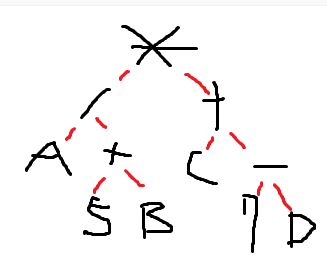 *
/ +
A + C -
5 B 7 D